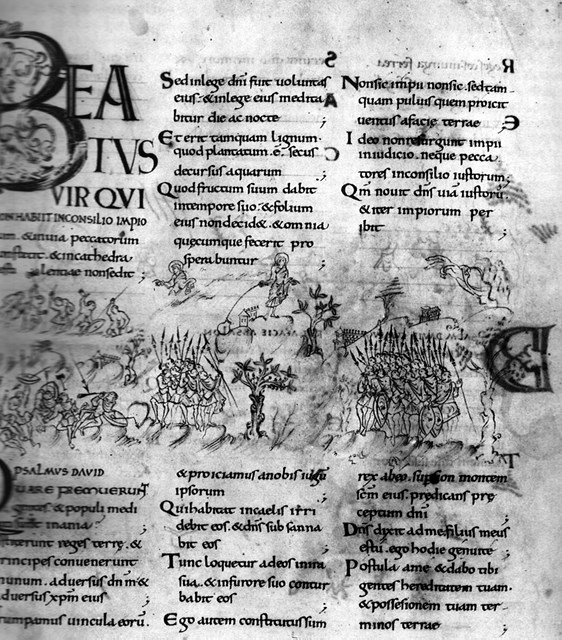 BEA
TVS
VIR QVI
NON HABIIT INCONSILIO IMPIO
rum. & inuia peccatorum
non stetit. & incathedra
pestilentiae nonsedit ;
Sed inlege dnī fuit uoluntas
eius. & inlege eius medita
bitur die ac nocte ;
Et erit tamquam lignum.
quod plantatum .ē. secus
decursus aquarum ;
Quod fructum suum dabit
intempore suo. & folium
eius non decid&. & omnia
quęcumque fecerit pro
spera buntur ;
Nonsic impii nonsic. sed tam
quam puluis quem proicit
uentus afacie terrae ;
Ideo non resurgunt impii
iniudicio. neque pecca
tores inconsilio iustorum ;
Qm̄ nouit dn̄s uiā iustorū.
& iter impiorum per
ibit ;
PSALMVS DAVID
QUARE FREMUERUNT
gentes. & populi medi
tati sunt inania ;
Astiterunt reges terrę. &
principes conuenerunt
inunum. aduersus dn̄m &
aduersus xp̄m eius ;
Dirumpamus uincula eorū.
& proiciamus anobis iugū
ipsorum ;
Qui habitat incaelis irri
debit eos. & dn̄s sub sanna
bit eos ;
Tunc loquetur ad eos inira
sua. & infurore suo contur
babit eos ;
Ego autem constitutus sum
rex abeo. super sion montem
scm̄ eius. predicans prę
ceptum dnī ;
Dn̄s dixit ad me filius meus
estū. ego hodie genuite ;
Postula ame & dabo tibi
gentes hereditatem tuam.
& possesionem tuam ter
minos terrae ;